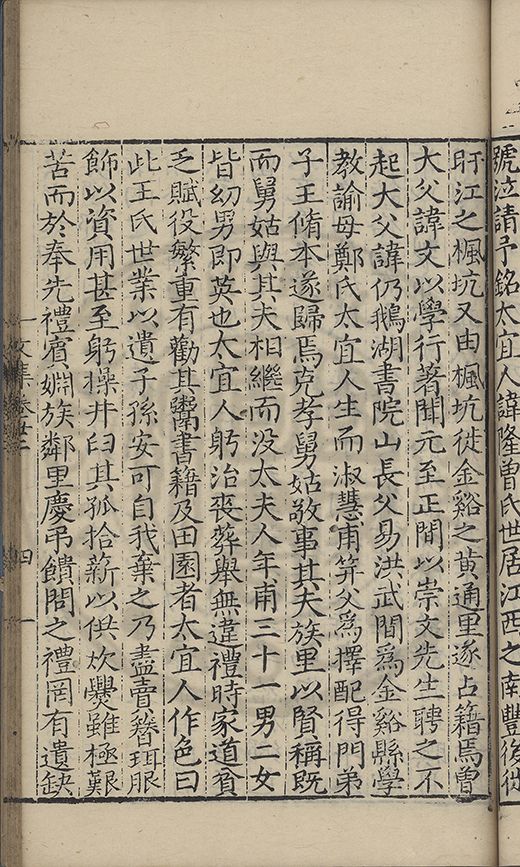 號泣請予銘太宜人諱隆曾氏世居江西之南豐後徙
盱江之楓坑又由楓坑徙金谿之黃通里遂占籍焉曾
大父諱文以學行著聞元至正間以崇文先生聘之不
起大父諱仍鵝湖書院山長父易洪武間爲金谿縣學
教諭母鄭氏太宜人生而淑慧甫笄父爲擇配得門弟
子王脩本遂歸焉克孝舅姑敬事其夫族里以賢稱旣
而舅姑與其夫相繼而没太夫人年甫三十一男二女
皆幼男即英也太宜人躬治喪葬舉無違禮時家道貧
乏賦役繁重有勸其鬻書籍及田園者太宜人作色曰
此王氏世業以遺子孫安可自我棄之乃盡賣簪珥服
飾以資用甚至躬操井臼其孤拾薪以供炊爨雖極艱
苦而於奉先禮賓姻族鄰里慶弔饋問之禮罔有遺缺
文集卷廿二 四